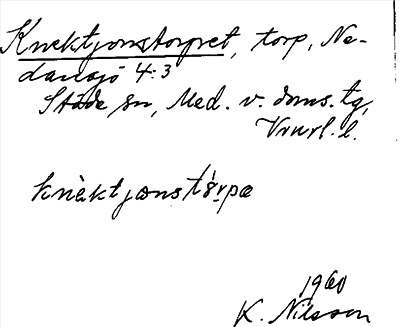 Knektjonstorpet, torp, Ne-
dansjö 4:3
Stöde sn, Med. v. doms. tg,
l.
knèktjonstårpe
1960
K. Nilsson